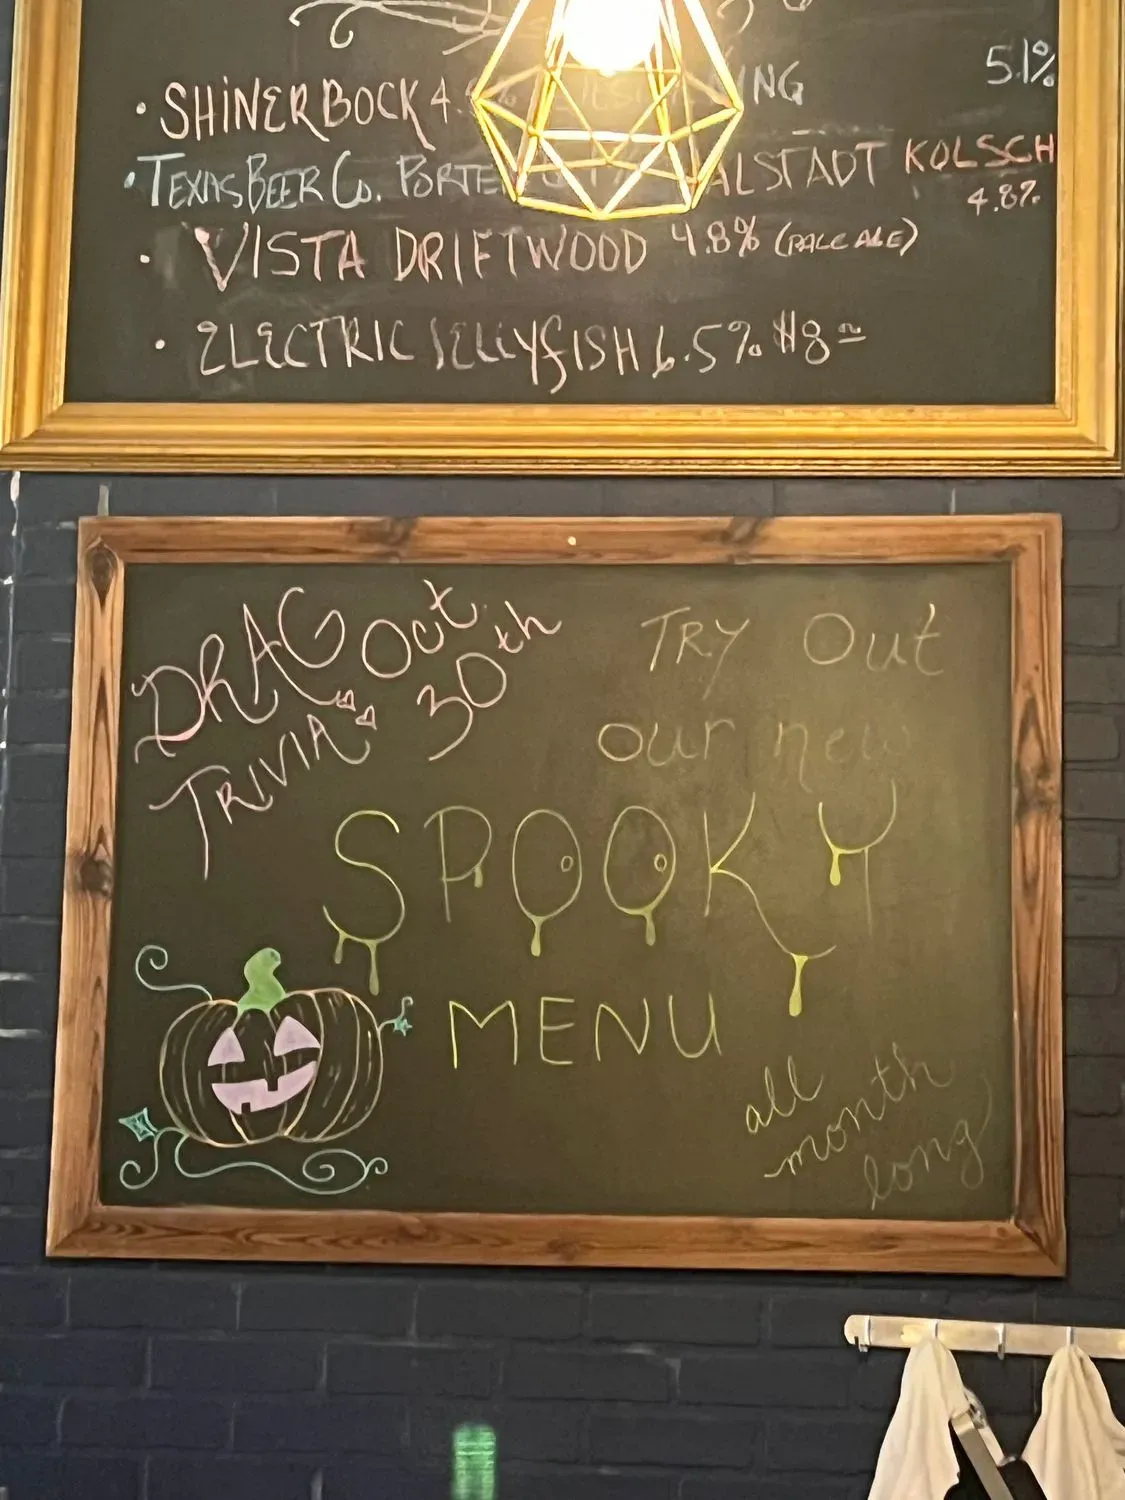 5.1%
• SHINER BOCK 4.
• TEXAS BEER Co. PORTER ALSTADT KOLSCH
4.8%
• VISTA DRIFTWOOD 4.8% (PALE ALE)
• ELECTRIC JELLYFISH 6.5% $8
DRAG Oct
TRIVIA 30th
TRY Out
our new
SPOOKY
MENU
all
month
long